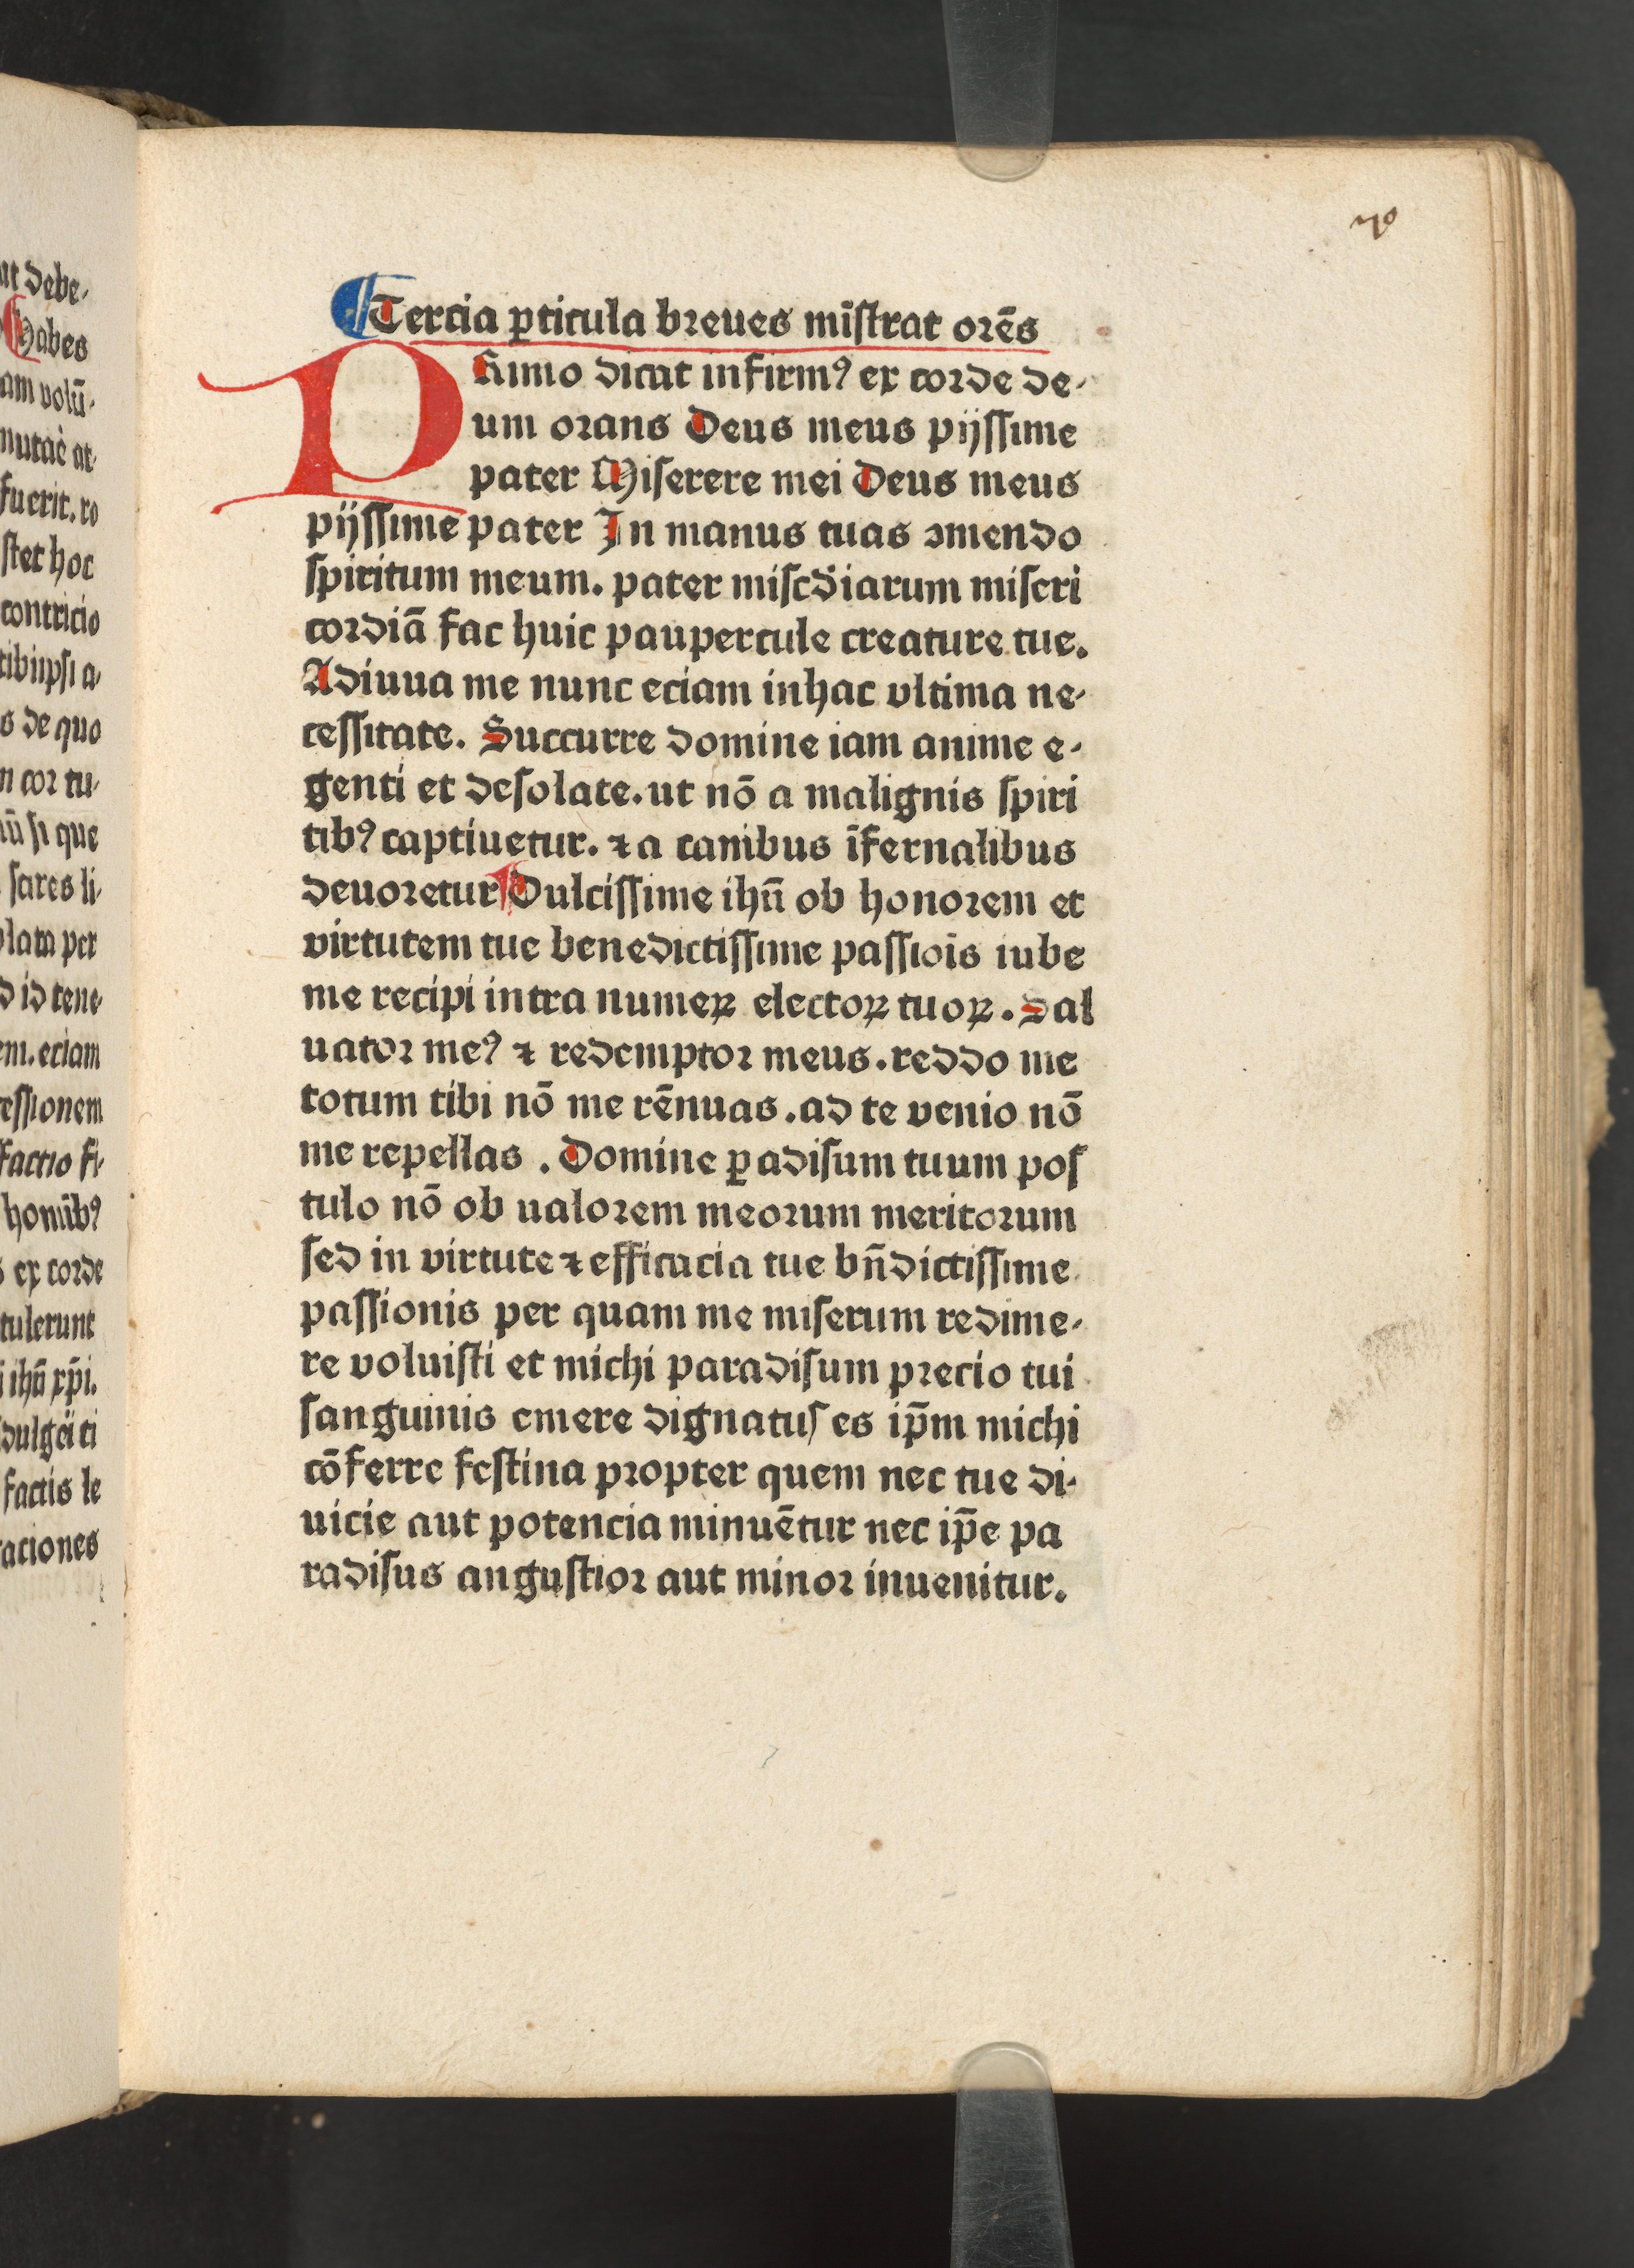 70
¶Tercia ꝑticula breues mīstrat orēs
PRimo dicat infirmꝰ ex corde de-
um orans Deus meus pijssime
pater Miserere mei Deus meus
pijssime pater In manus tuas ꝯmendo
spiritum meum. pater miscdiarum miseri
cordiā fac huic paupercule creature tue.
Adiuua me nunc eciam inhac vltima ne-
cessitate. Succurre domine iam anime e-
genti et desolate. ut nō a malignis spiri
tibꝰ captiuetur. ⁊ a canibus īfernalibus
deuoretur ¶Dulcissime ihū ob honorem et
virtutem tue benedictissime passiōis iube
me recipi intra numeꝝ electoꝝ tuoꝝ. Sal
uator meꝰ ⁊ redemptor meus. reddo me
totum tibi nō me rēnuas. ad te venio nō
me repellas. Domine ꝑadisum tuum pos
tulo nō ob ualorem meorum meritorum
sed in virtute ⁊ efficacia tue bn̄dictissime
passionis per quam me miserum redime-
re voluisti et michi paradisum precio tui
sanguinis emere dignatus es ip̄m michi
cōferre festina propter quem nec tue di-
uicie aut potencia minuētur nec ip̄e pa
radisus angustior aut minor inuenitur.
ut debe-
Habes
am volū-
fuerit. ro
ster hoc
contricio
tibiipsi a-
s de quo
n cor tu-
ū si que
scires li-
lata per
d id tene-
em. eciam
essionem
factio fi-
homībꝰ
s ex corde
tulerunt
ihū xp̄i.
factis le
raciones